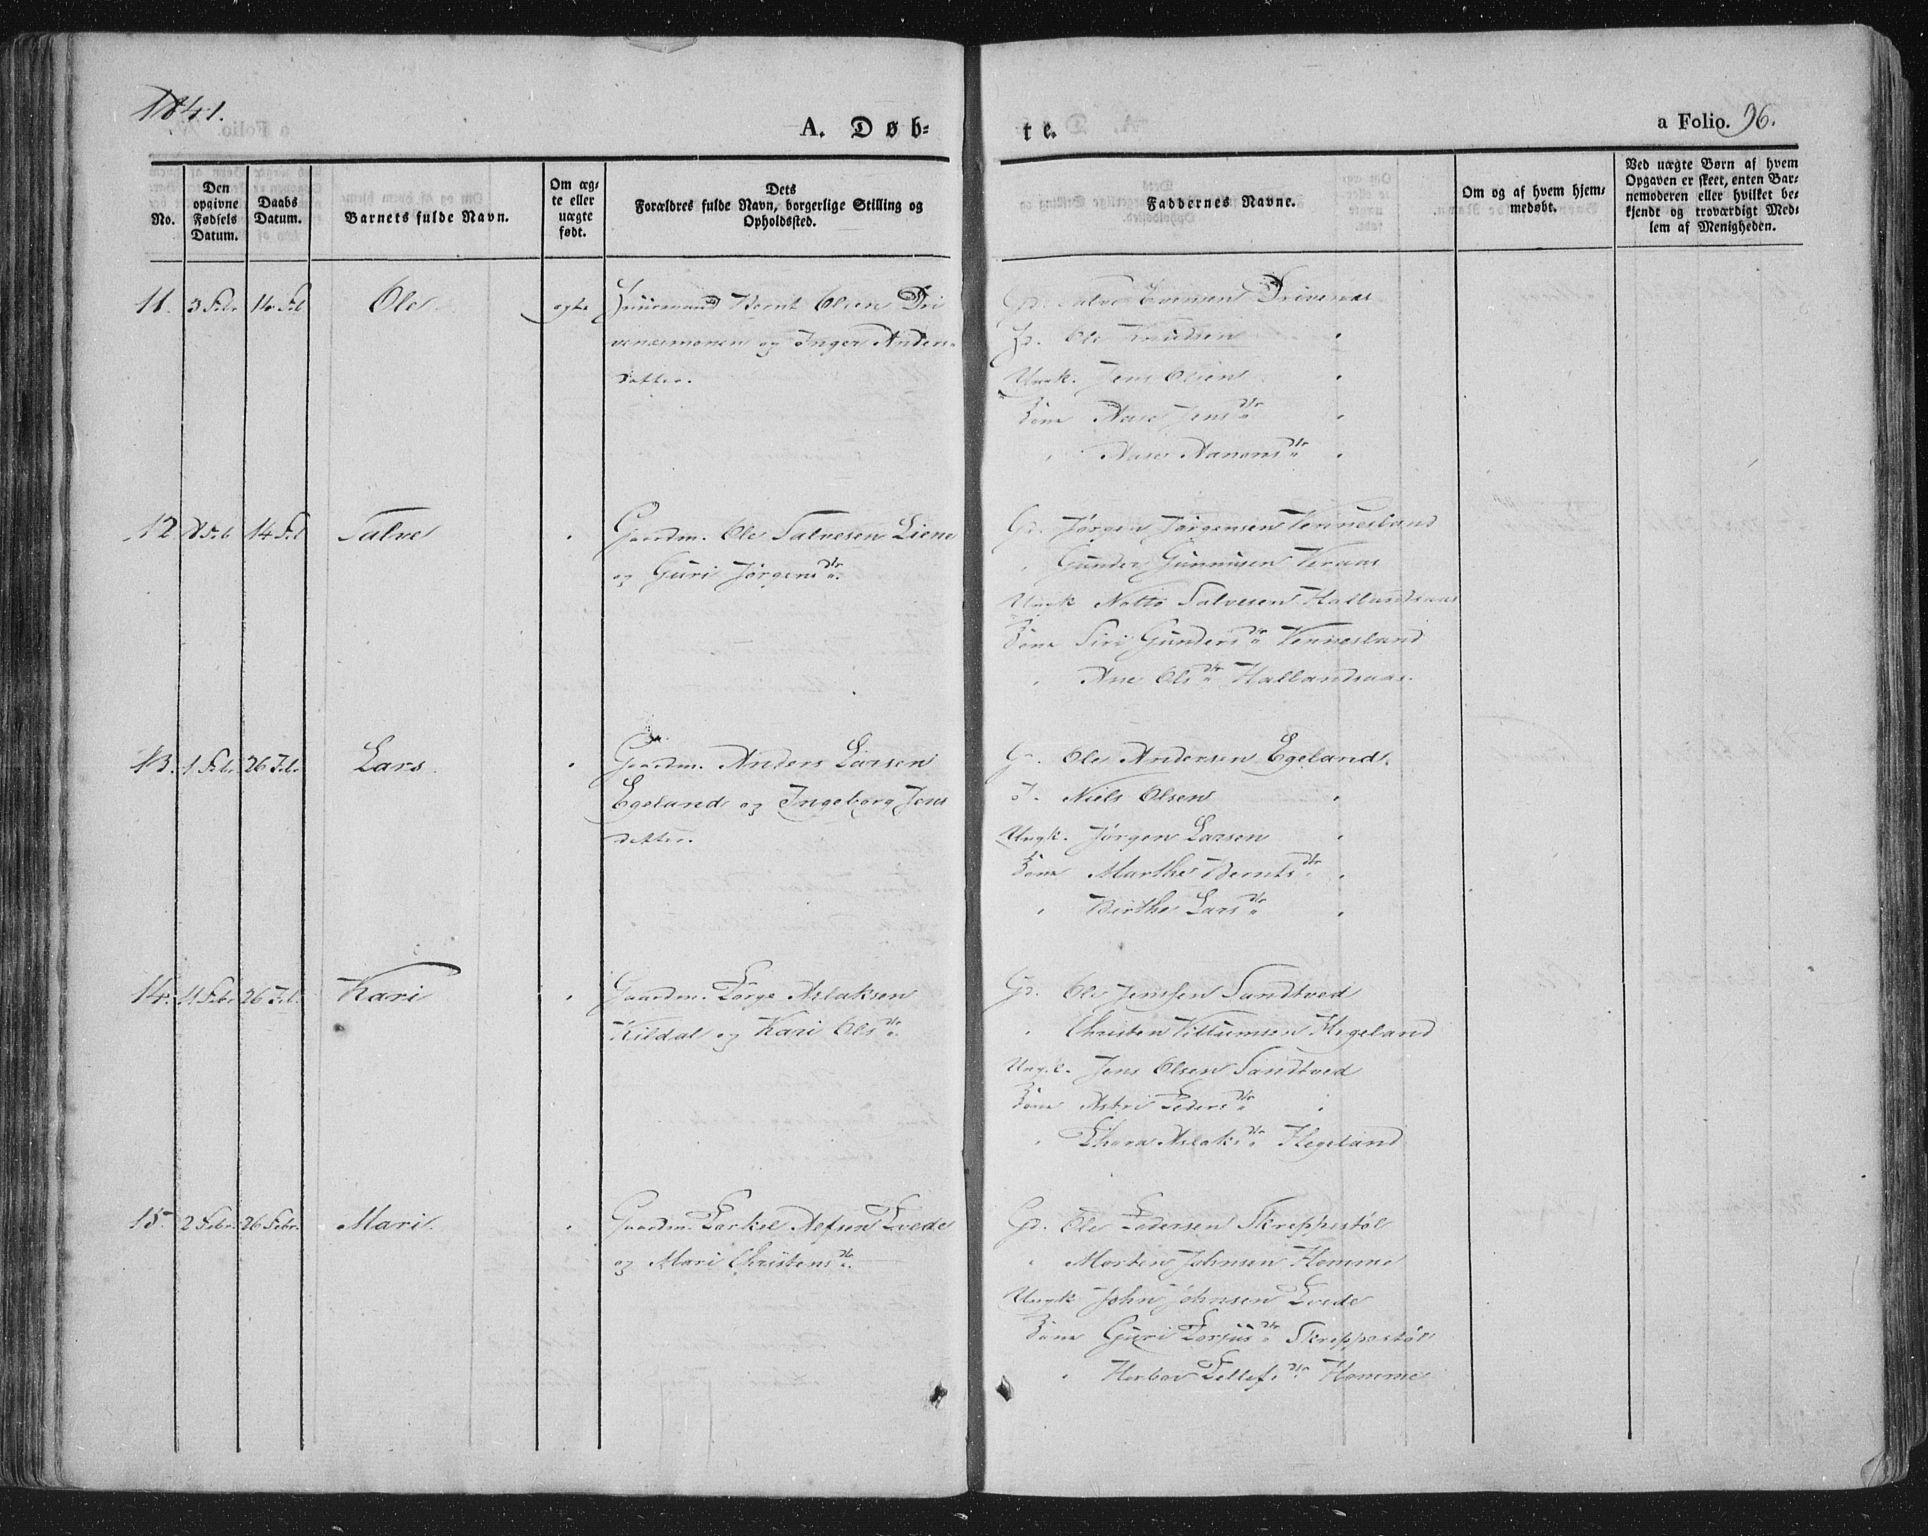 1841.
A. Døb=
te.
a Folio. 96.
No.
Den opgivne Fødsels Datum.
Daabs Datum.
Barnets fulde Navn.
Om æg= te eller uægte født.
Dets Forældres fulde Navn, borgerlige Stilling og Opholdssted.
Faddernes Navne.
Om og af hvem hjem= medøbt.
Ved uægte Børn af hvem Opgaven er skeet, enten Bar= nemoderen eller hvilket be= kjendt og troværdigt Med= lem af Menigheden.
11. 3 Febr 14 Feb Ole ægte Huusmand Bernt Olsen Dri
venæsmonen og Inger Anders=
datter.
Gd. Salve Evensen Drivenæs
Hd. Ole Knudsen "
Ungk. Jens Olsen "
Kone Aase Jensdr "
" Aase Aanonsdr "
12 Feb 14 Feb Salve " Gaardm. Ole Salvesen Liene
og Guri Jørgensdr.
Gd. Jørgen Jørgensen Vennesland
" Gunder Gunnusen Veraas
Ungk Notto Salvesen Hallandsaas
Kone Siri Gundersdr Vennesland
" Ane Olsdr Hallandsaas.
13. 1 Febr 26 Febr Lars " Gaardm. Anders Larsen
Egeland og Ingeborg Jens
datter.
G. Ole Andersen Egeland.
Niels Olsen "
Ungk. Jørgen Larsen "
Kone Marthe Berntsdr "
" Birthe Larsdr "
14. 4 Febr 26 Feb. Kari " Gaardm. Tørge Aslaksen
Kildal og Kari Olsdr.
Gd. Ole Jenssen Sandtved
" Christen Villumsen Hegeland
Ungk. Jens Olsen Sandtved
Kone Astri Pedersdr "
" Thora Aslaksdr Hegeland
15. 2 Febr. 26 Febr. Mari. " Gaardm. Torkel Alfsen Tvede
og Mari Christensdr.
Gd. Ole Pedersen Skreppestøl
" Morten Johnsen Homme
Ungk John Johnsen Tvede
Kone Guri Torjusdr Skreppestøl
" Herbor Tellefsdr Homme